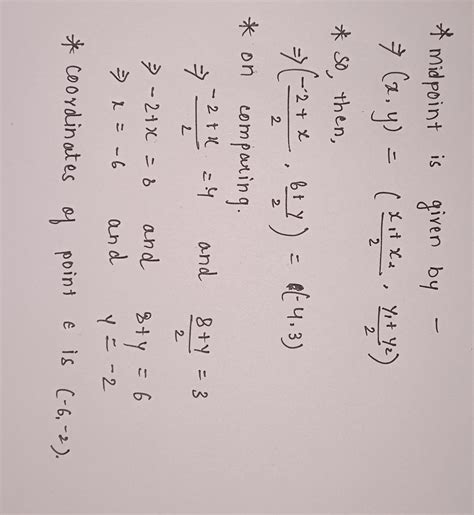 * midpoint is given by -
⇒ (x, y) = (x₁ + x₂/2, y₁ + y₂/2)
* So, then,
⇒ (-2 + x/2, 8 + y/2) = (-4, 3)
* on comparing.
⇒ -2 + x/2 = -4 and 8 + y/2 = 3
⇒ -2 + x = 8 and 8 + y = 6
⇒ x = -6 and y = -2
* Coordinates of point E is (-6, -2).